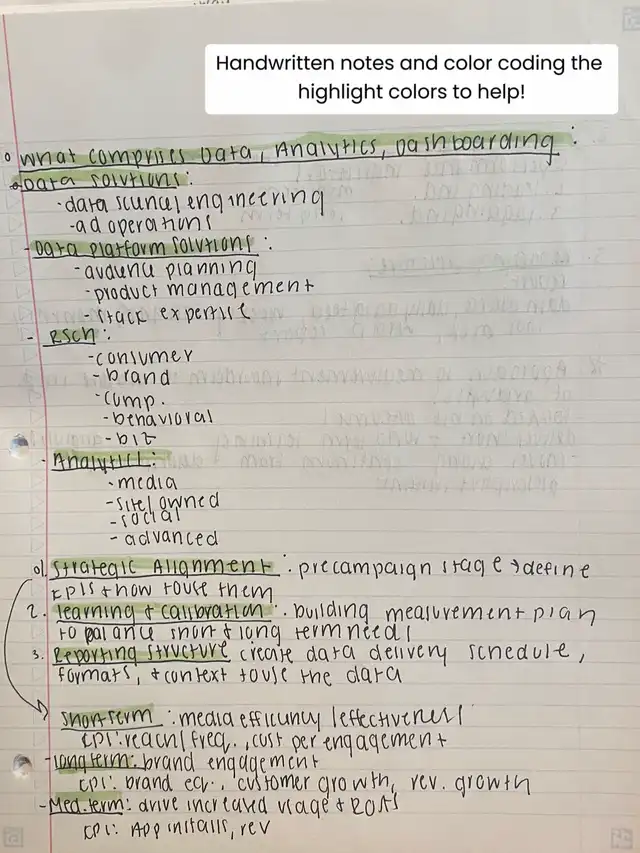 Handwritten notes and color coding the
highlight colors to help!
What comprises Data, Analytics, Dashboarding:
Data solutions:
-data science/engineering
-ad operations
-Data platform solutions:
-audience planning
-product management
-stack expertise
- RSCH:
-consumer
-brand
-comp.
-behavioral
-biz
-Analytics:
-media
-site/owned
-social
-advanced
1. Strategic Alignment: precampaign stage → define
KPIs + how to use them
2. learning + calibration: building measurement plan
to balance short + long term needs
3. Reporting structure create data delivery schedule,
formats, + context to use the data
short term: media efficiency/effectiveness
KPI: reach/freq., cust per engagement
-long term: brand engagement
KPI: brand eq., customer growth, rev. growth
-Med. term: drive increased usage + ROAS
KPI: App installs, rev